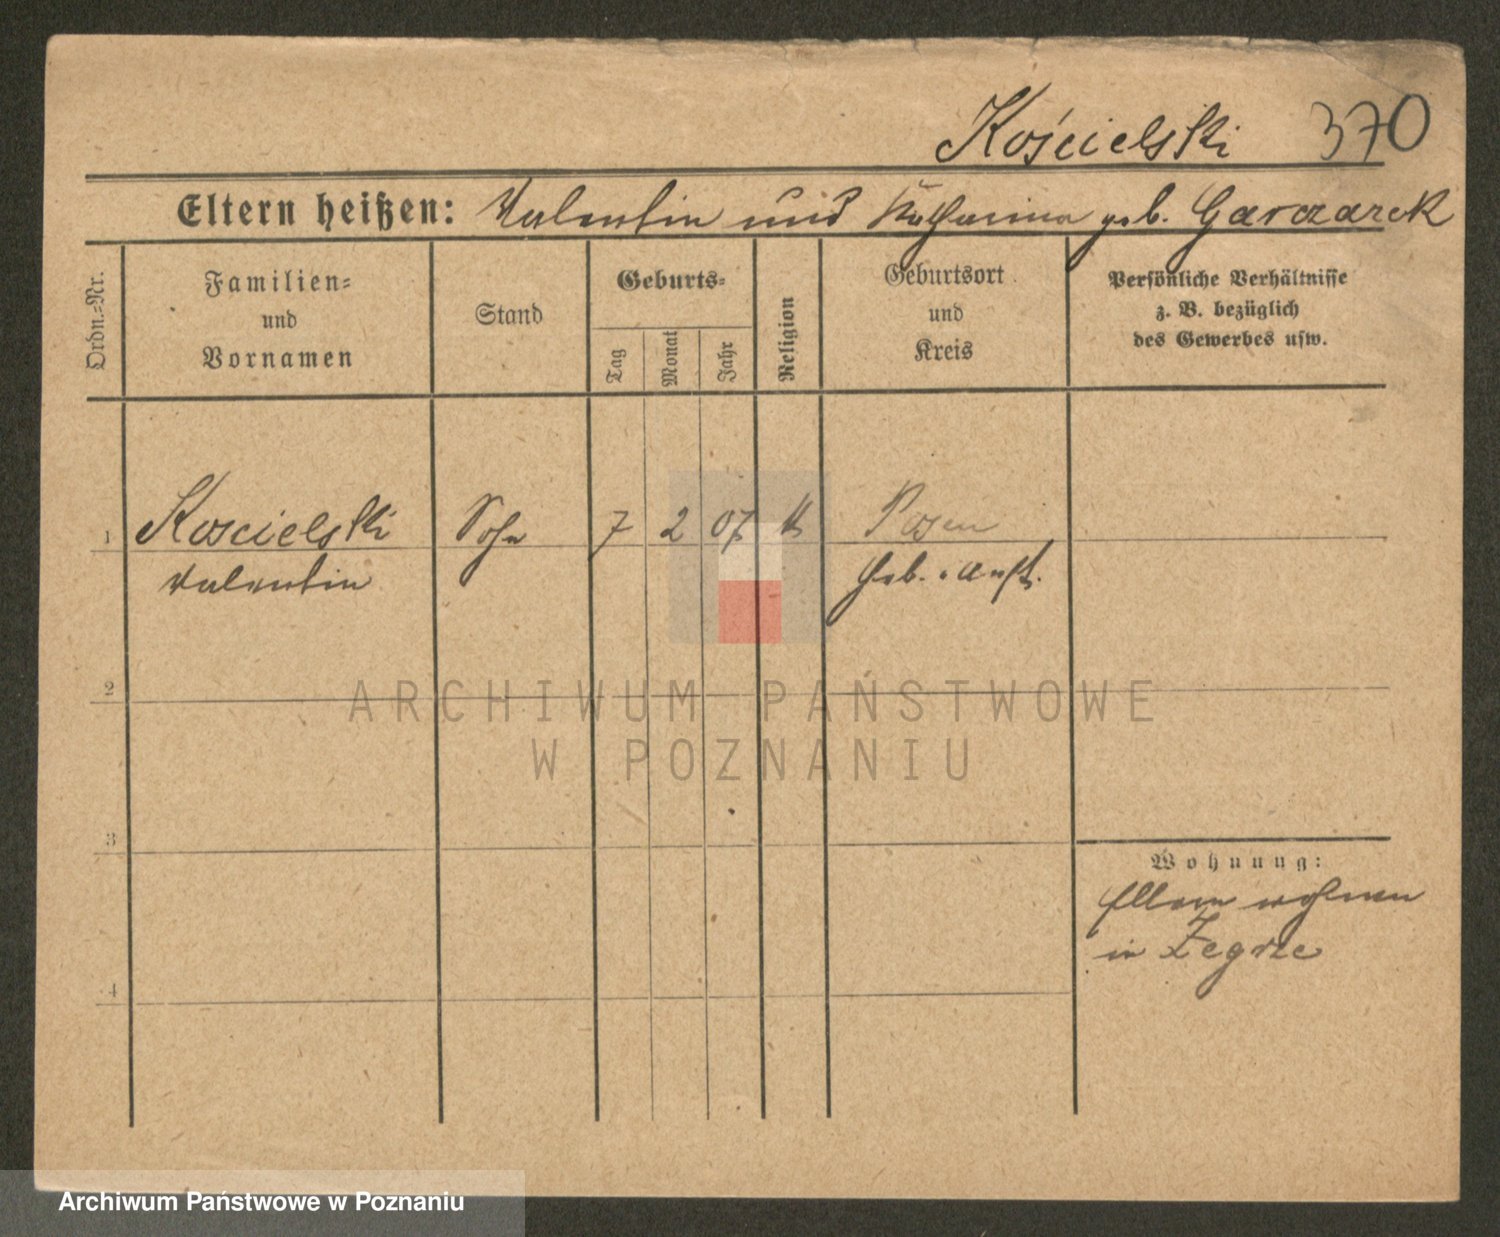 Kościelski 370
Eltern heißen: Valentin und Katharina geb. Garczarek
Ordn.-Nr.
Familien-
und
Vornamen
Stand
Geburts-
Tag
Monat
Jahr
Religion
Geburtsort
und
Kreis
Persönliche Verhältnisse
z. B. bezüglich
des Gewerbes usw.
1 Koscielski Sohn 7 2 07 k Posen
Valentin Geb. Anst.
2
3
4
Wohnung:
Eltern wohnen
in Zegrze
ARCHIWUM PAŃSTWOWE
W POZNANIU
Archiwum Państwowe w Poznaniu